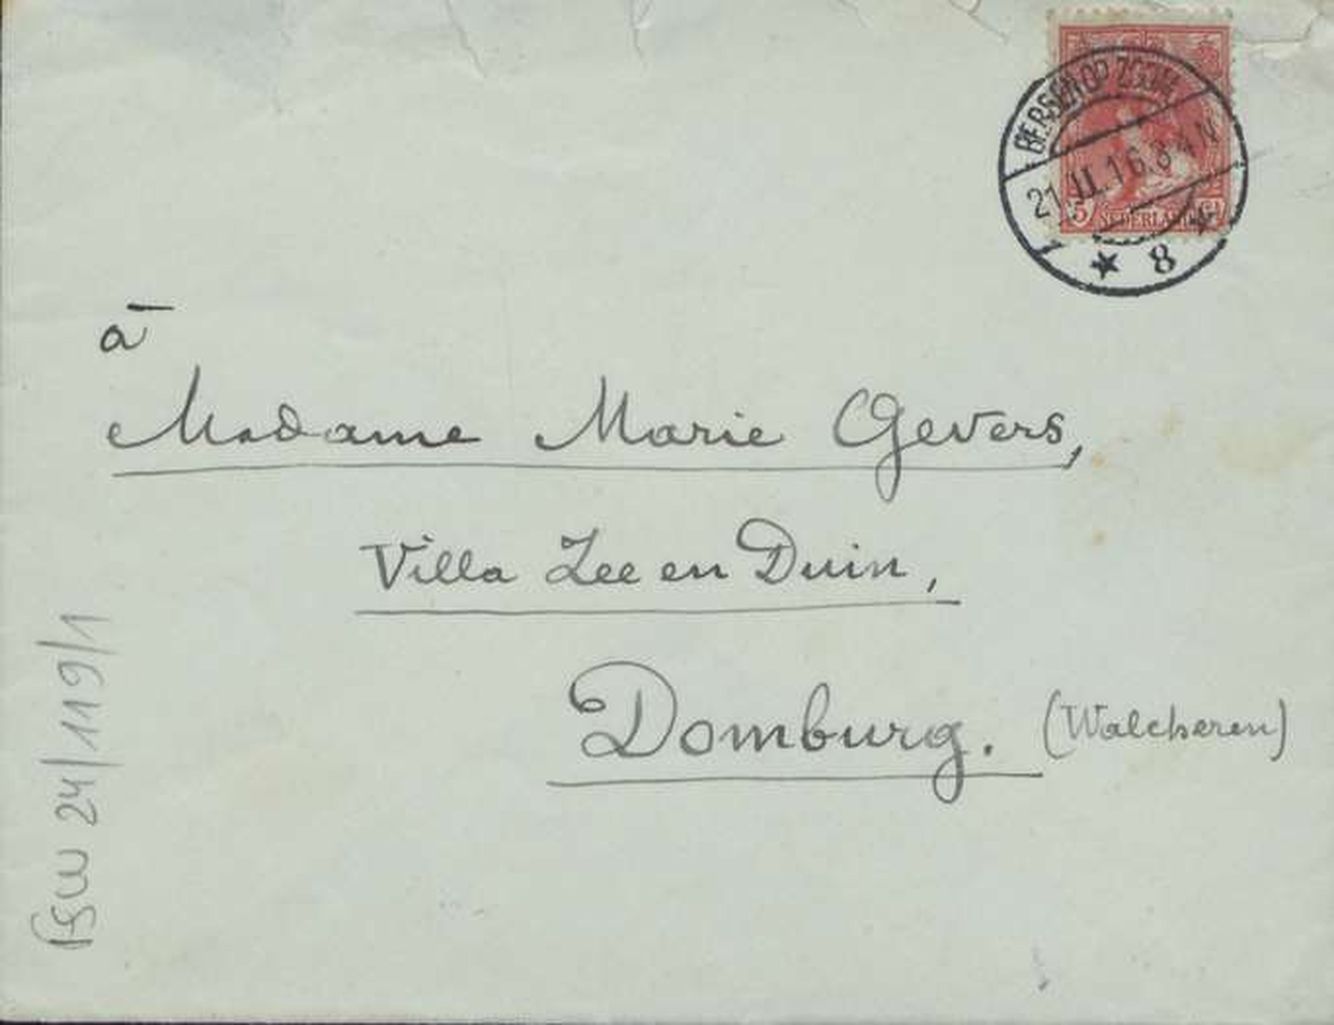 BERGEN OP ZOOM
21.11.16.8-9 N
1 * 8 *
5 NEDERLAND Ct
à
Madame Marie Gevers,
Villa Zee en Duin,
Domburg. (Walcheren)
24/119/1